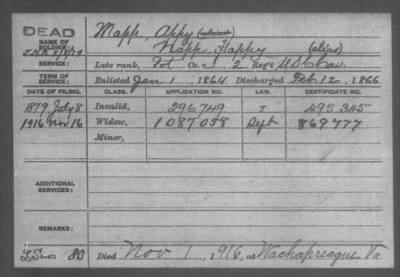 DEAD
NAME OF SOLDIER:
Mapp, Appy (alias)
Napp, Happy (alias)
Late rank, Pvt Co. I, 2 Reg't U.S.C. Cav.
TERM OF SERVICE:
Enlisted Jan 1, 1864 Discharged Feb. 12, 1866
DATE OF FILING. CLASS. APPLICATION NO. LAW. CERTIFICATE NO.
1879 July 8 Invalid, 296749 J 495345
1916 Nov 16 Widow, 1087058 Sept 869777
Minor,
ADDITIONAL SERVICES:
REMARKS:
Died Nov 1, 1916, at Wachapreague Va